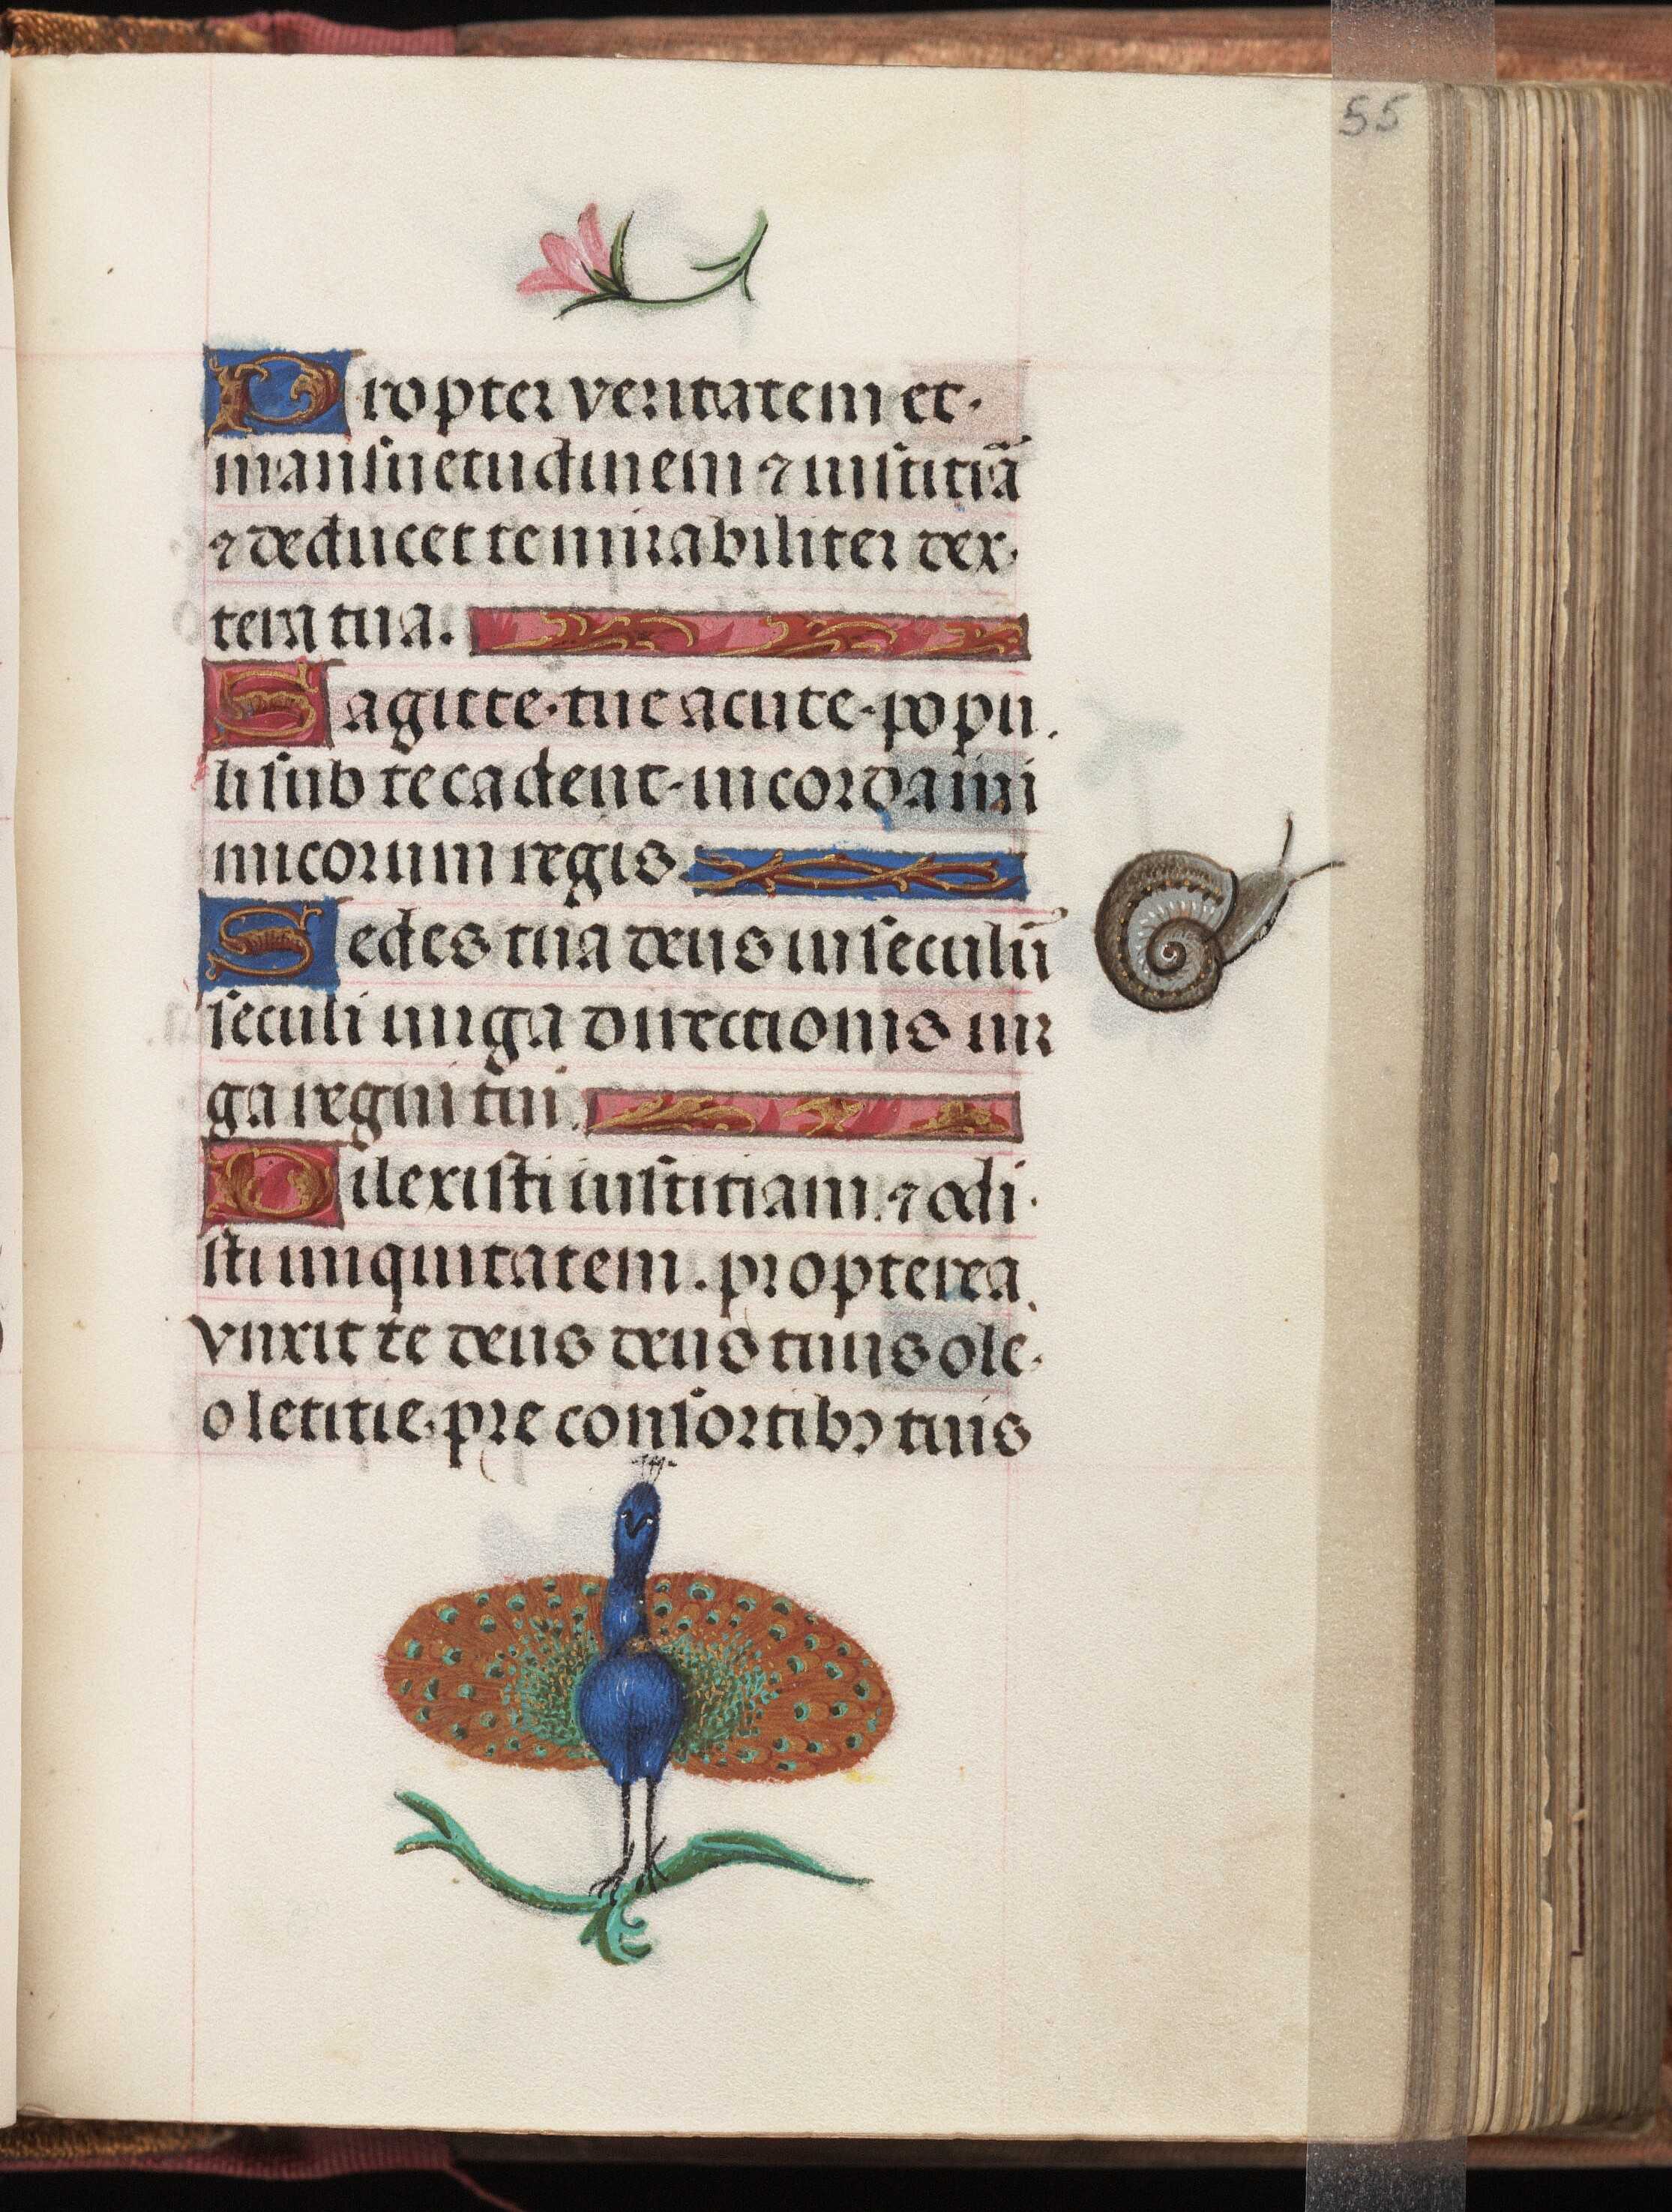 55
Propter veritatem et
mansuetudinem ⁊ iustitiā
⁊ deducet te mirabiliter dex
tera tua.
Sagitte tue acute popu
li sub te cadent in corda ini
micorum regis.
Sedes tua deus in seculū
seculi uirga directionis uir
ga regni tui.
Dilexisti iustitiam. ⁊ odi
sti iniquitatem. propterea
vnxit te deus deus tuus ole
o letitie pre consortibꝫ tuis